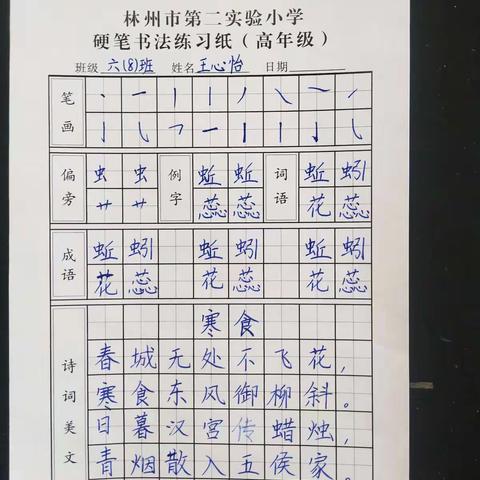 林州市第二实验小学
硬笔书法练习纸(高年级)
班级 六(8)班 姓名 王心怡 日期
笔画
偏旁 虫 虫 例字 蚯 蚯 词语 蚯 蚓
艹 艹 蕊 蕊 花 蕊
成语 蚯 蚓 蚯 蚓 蚯 蚓
花 蕊 花 蕊 花 蕊
诗词美文
寒食
春城无处不飞花,
寒食东风御柳斜。
日暮汉宫传蜡烛,
青烟散入五侯家。